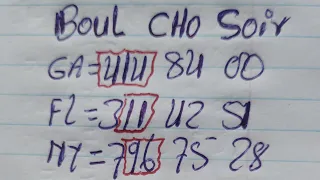 BOUL CHO SOIR
GA=414 84 00
FL=311 42 51
NY=796 75 28